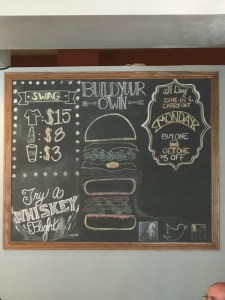 SWAG
$15
$8
$3
Try A
WHISKEY
Flight
BUILD YOUR
OWN
All Day
DINE-IN &
CARRY OUT
MONDAY
BUY ONE
GET ONE
$5 OFF